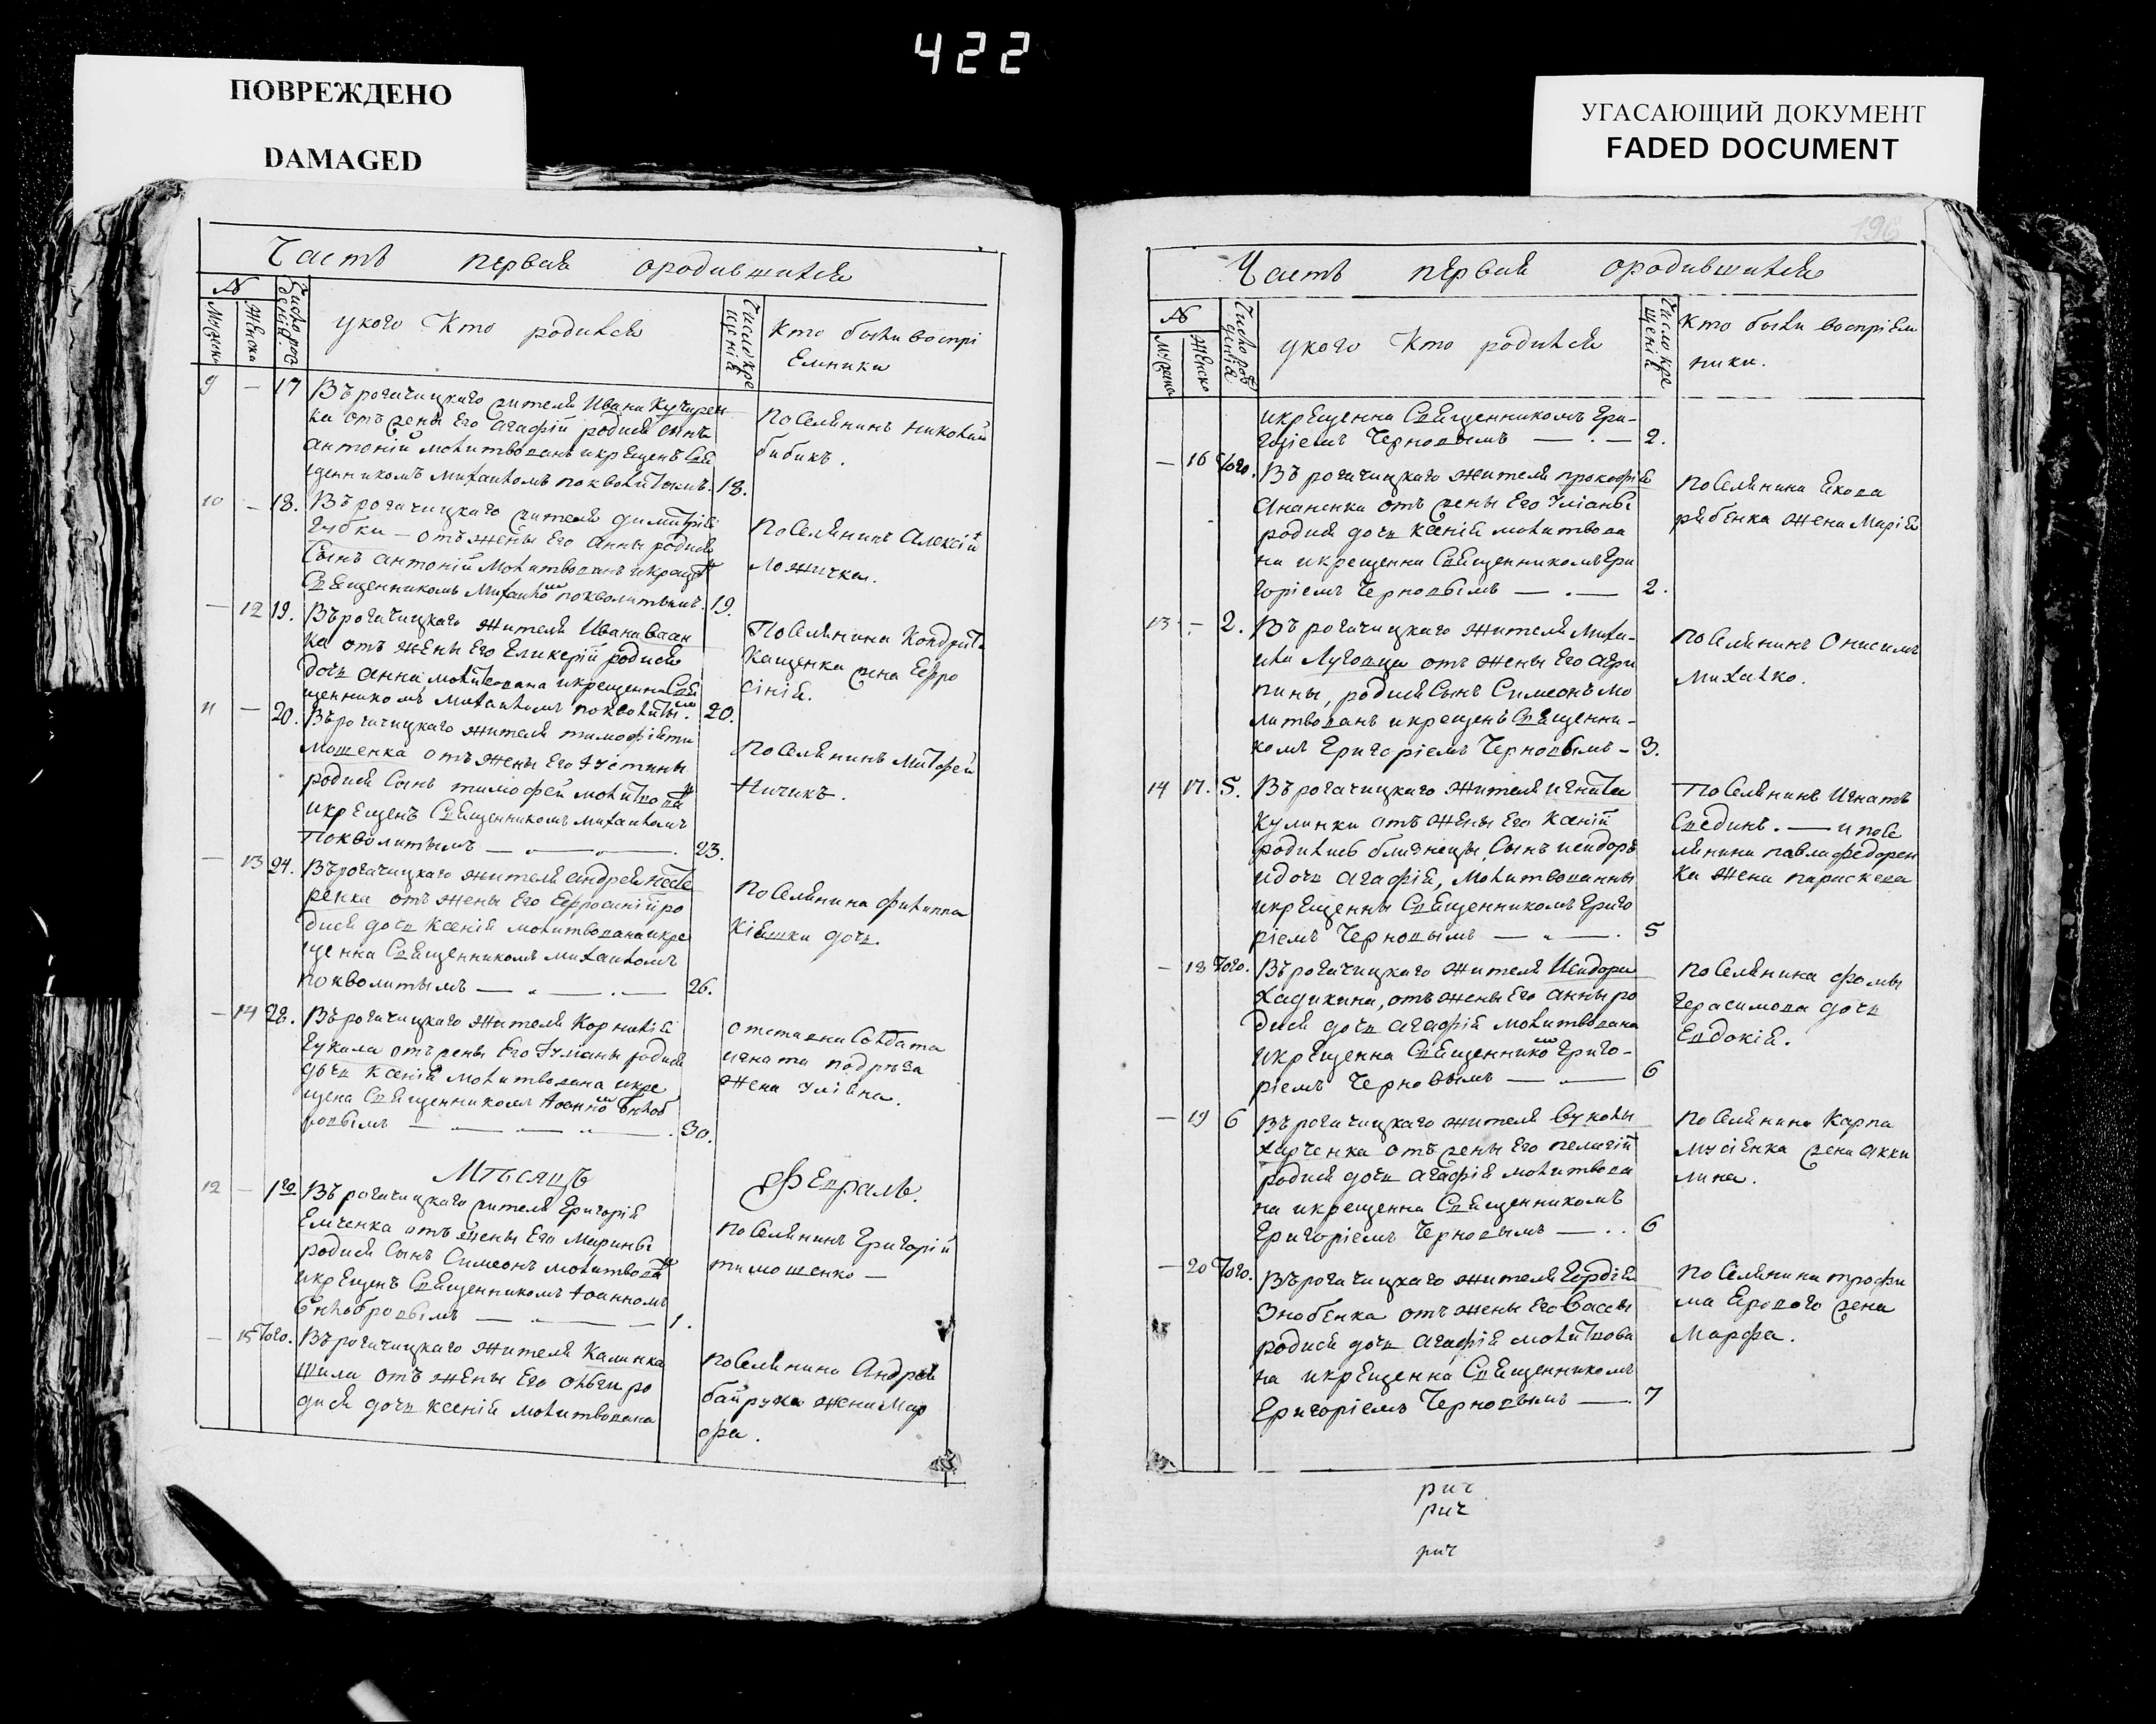 422
ПОВРЕЖДЕНО
DAMAGED
УГАСАЮЩИЙ ДОКУМЕНТ
FADED DOCUMENT
Часть первая ородившихся
№
Мужска
Женска
Число рож
денія
укого Кто родился
Число кре
щенія
Кто были воспрі
Емники
9 — 17 Въ рогачицкаго жителя Ивана Кучерен
ка отъ жены Его Агафіи родися сынъ
антоній молитвованъ икрещенъ Свя
щенникомъ михаиломъ поквалитымъ. 18.
Поселянинъ николай
бибикъ.
10 — 18. Въ рогачицкаго жителя димитрія
Губки — отъ жены Его Анны родися
Сынъ антоній молитвованъ икрещенъ
Священникомъ Михаиломъ поквалитымъ. 19.
Поселянинъ Алексій
Ложичка.
— 12 19. Въ рогачицкаго жителя Ивана Васен
ка отъ жены Его Гликеріи родися
дочь анна молитвована икрещенна Свя
щенникомъ михаиломъ поквалитымъ. 20.
Поселянина Кондрата
Кащенка жена Евфро
сінія.
11 — 20. Въ рогачицкаго жителя тимофія ти
мошенка отъ жены Его Іустины
родися Сынъ тимофей молитвованъ
икрещенъ Священникомъ михаиломъ
Поквалитымъ — 23.
Поселянинъ митофей
Ничикъ.
— 13 24. Въ рогачицкаго жителя андрея Несте
ренка отъ жены Его Евфросиніи ро
дися дочь Ксенія молитвована икре
щенна Священникомъ михаиломъ
поквалитымъ — 26.
Поселянина филиппа
Кіяшки дочь.
— 14 28. Въ рогачицкаго жителя Корнилія
Гукала отъ жены Его Іуліаны родися
дочь Ксенія молитвована икре
щена Священникомъ Іоанномъ Бѣлоб
родымъ — 30.
отставни Солдата
игната подряза
жена Уліяна.
Мѣсяцъ Февраль.
12 — 1го Въ рогачицкаго жителя Григорія
Емченка отъ жены Его Марины
родися Сынъ Симеонъ молитвованъ
икрещенъ Священникомъ Іоанномъ
Бѣлобродымъ — 1.
Поселянинъ Григорій
тимошенко —
— 15 Того. Въ рогачицкаго жителя Калинка
Шила отъ жены Его Ольги ро
дися дочь Ксенія молитвована
Поселянина Андрея
байрука жена Мар
фа.
196
Часть первая ородившихся
№
Мужска
Женско
Число рож
денія
укого Кто родился
Число кре
щенія
Кто были воспріем
ники.
икрещенна Священникомъ Гри-
горіемъ Черновымъ — 2.
— 16 Того. Въ рогачицкаго жителя прокофія
Ананенка отъ жены Его Уліаны
родися дочь Ксенія молитвова
на икрещенна Священникомъ Гри
горіемъ Черновымъ — 2.
Поселянина Якова
рябенка жена Марія
13 — 2. Въ рогачицкаго жителя миха-
ила Луговца отъ жены Его Агри
пины, родися Сынъ Симеонъ мо
литвованъ икрещенъ Священни-
комъ Григоріемъ Черновымъ — 3.
Поселянинъ Онисимъ
Михалко.
14 17. 5. Въ рогачицкаго жителя игната
Кулинки отъ жены Его Ксеніи
родились близнецы, Сынъ исидоръ
идочь Агафія, молитвованны
икрещенны Священникомъ Григо
ріемъ Черновымъ — 5
Поселянинъ Игнатъ
Сведин. — и посе
лянина павла федорен
ка жена параскева
— 18 Того. Въ рогачицкаго жителя Исидора
Хадикина, отъ жены Его анны ро
дися дочь агафія молитвована
икрещенна Священникомъ Григо-
ріемъ Черновымъ — 6
Поселянина фомы
Герасимова дочь
Евдокія.
— 19 6 Въ рогачицкаго жителя Вукола
Харченка отъ жены Его пелагіи
родися дочь агафія молитвова
на икрещенна Священникомъ
Григоріемъ Черновымъ — 6
Поселянина Карпа
мусіенка жена Акки
лина.
— 20 Того. Въ рогачицкаго жителя Гордія
Знобенка отъ жены Его Вассы
родися дочь Агафія молитвова
на икрещенна Священникомъ
Григоріемъ Черновымъ — 7
Поселянина трофи
ма Ярового жена
Марфа.
рич
рич
рич